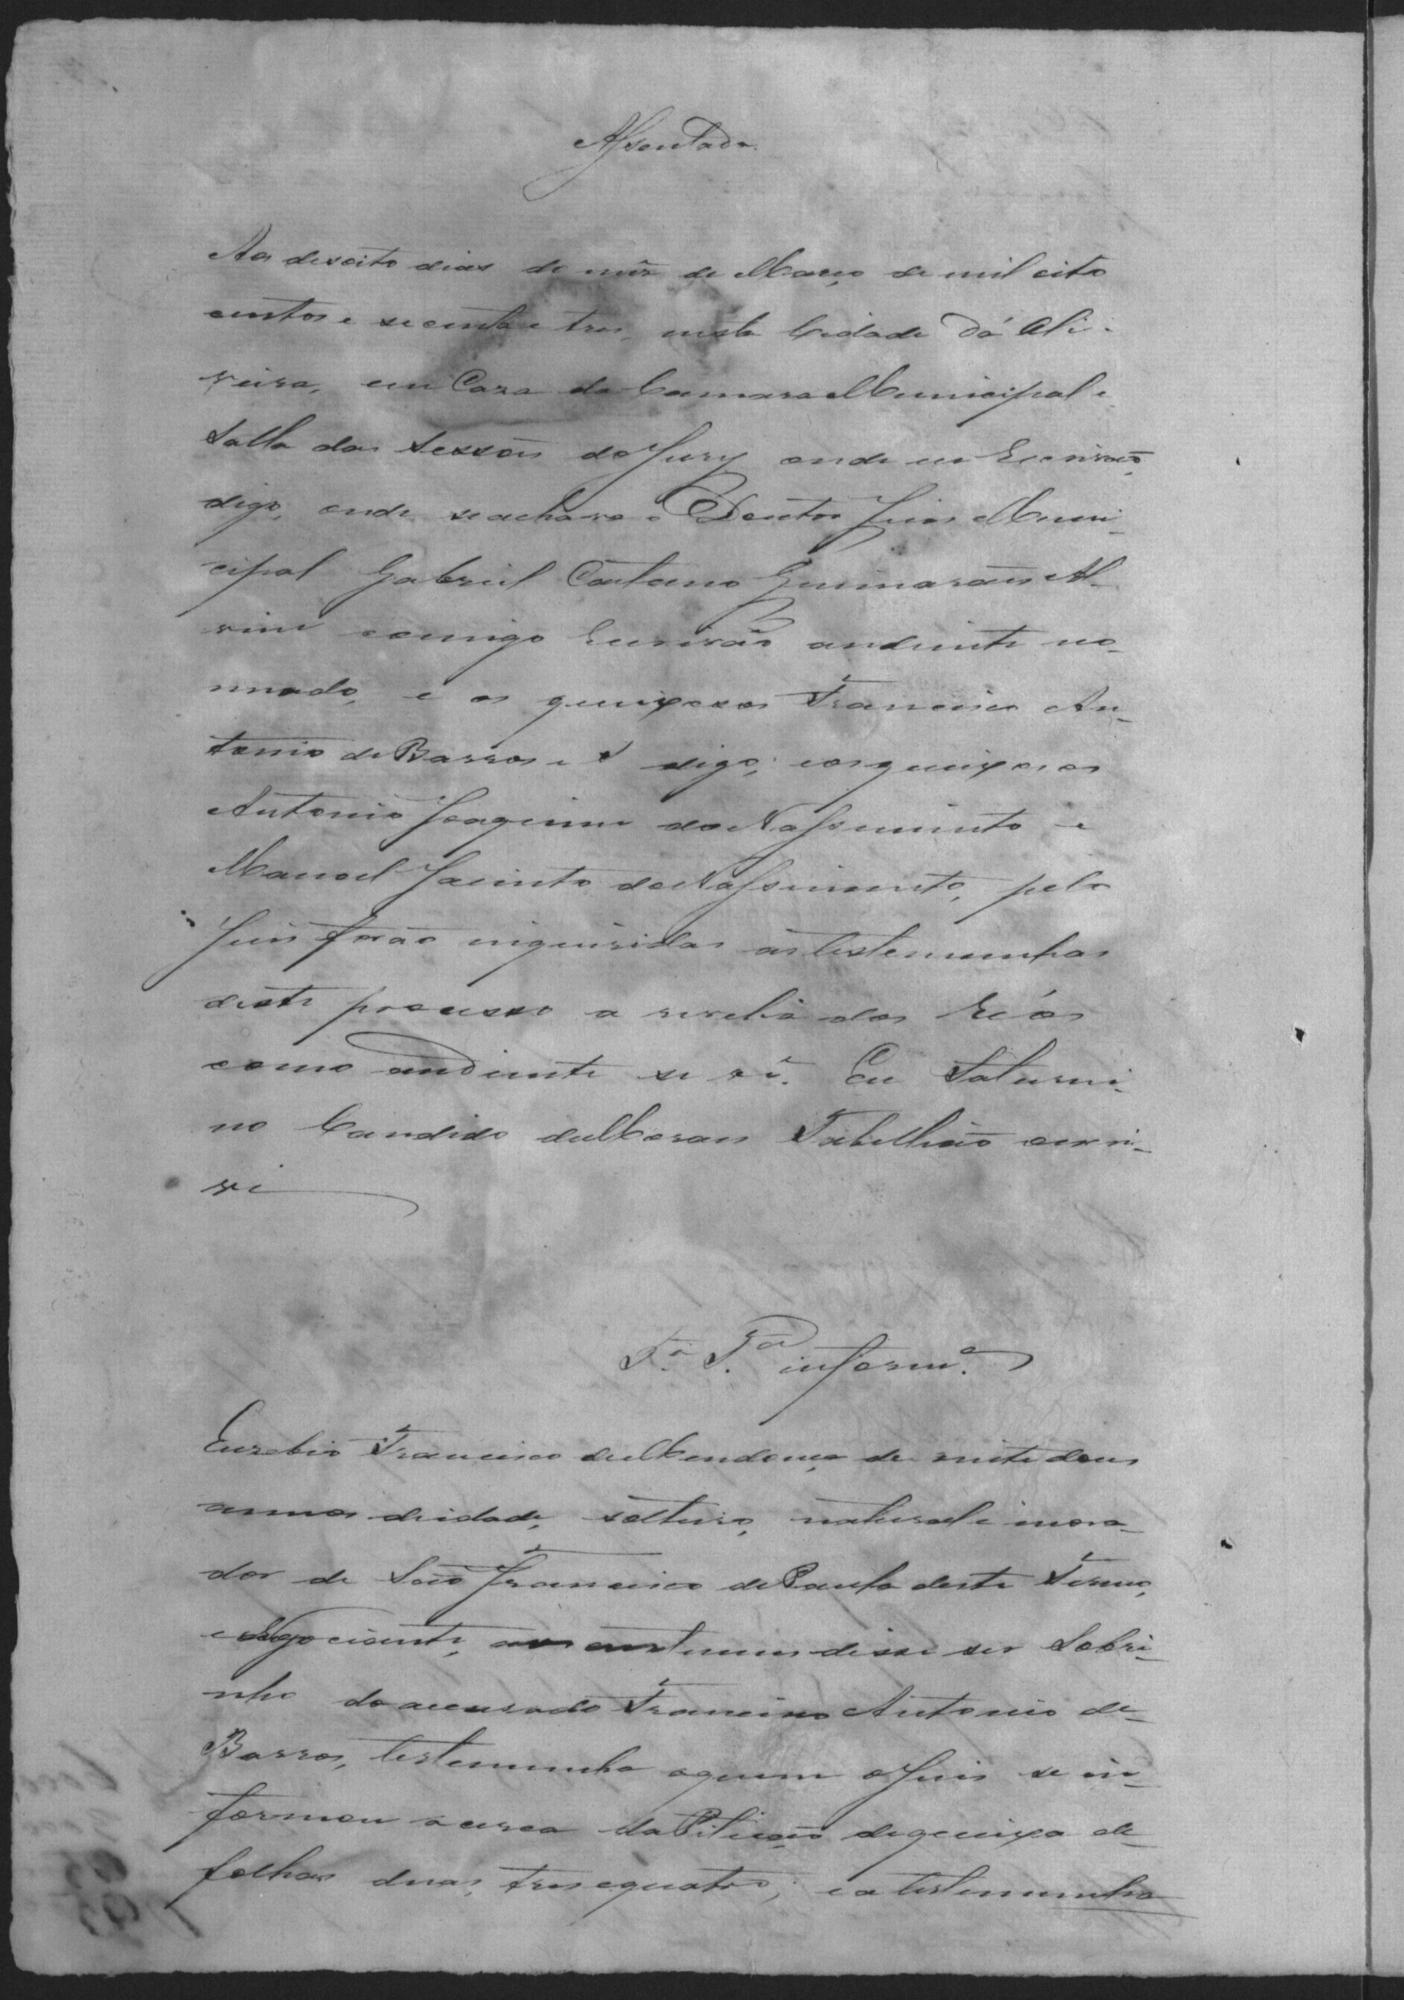 Assentada
Aos desoito dias do mês de Março de mil oito
centos e secenta e tres, nesta Cidade da Oli-
veira, em Casa da Camara Municipal e
Salla das Sessões do Jury onde eu Escrivão,
digo, onde se achava o Doutor Juis Muni-
cipal Gabriel Caetano Guimarães Al-
vim comigo Escrivão andiente no-
miado, e os queixosos Francisco An-
tonio de Barros e digo, e os queixosos
Antonio Joaquim do Nassimento e
Manoel Jacinto do Nassimento, pelo
Juis forão inquiridas as testemunhas
deste processo a revelia dos Réos
como andiente se vê. Eu Saturni-
no Candido de Moraes Tabellião escri-
vi
T. 1.ª inform.e
Euzebio Francisco de Mendonça de vinte dous
annos de idade, solteiro, natural e mora-
dor de São Francisco de Paula deste Termo,
e Negociante, aos custumes disse ser Sobri-
nho do accusado Francisco Antonio de
Barros, testemunha a quem o Juis se in-
formou a cerca da Petição de queixa de
folhas duas, tres e quatro; e a testemunha